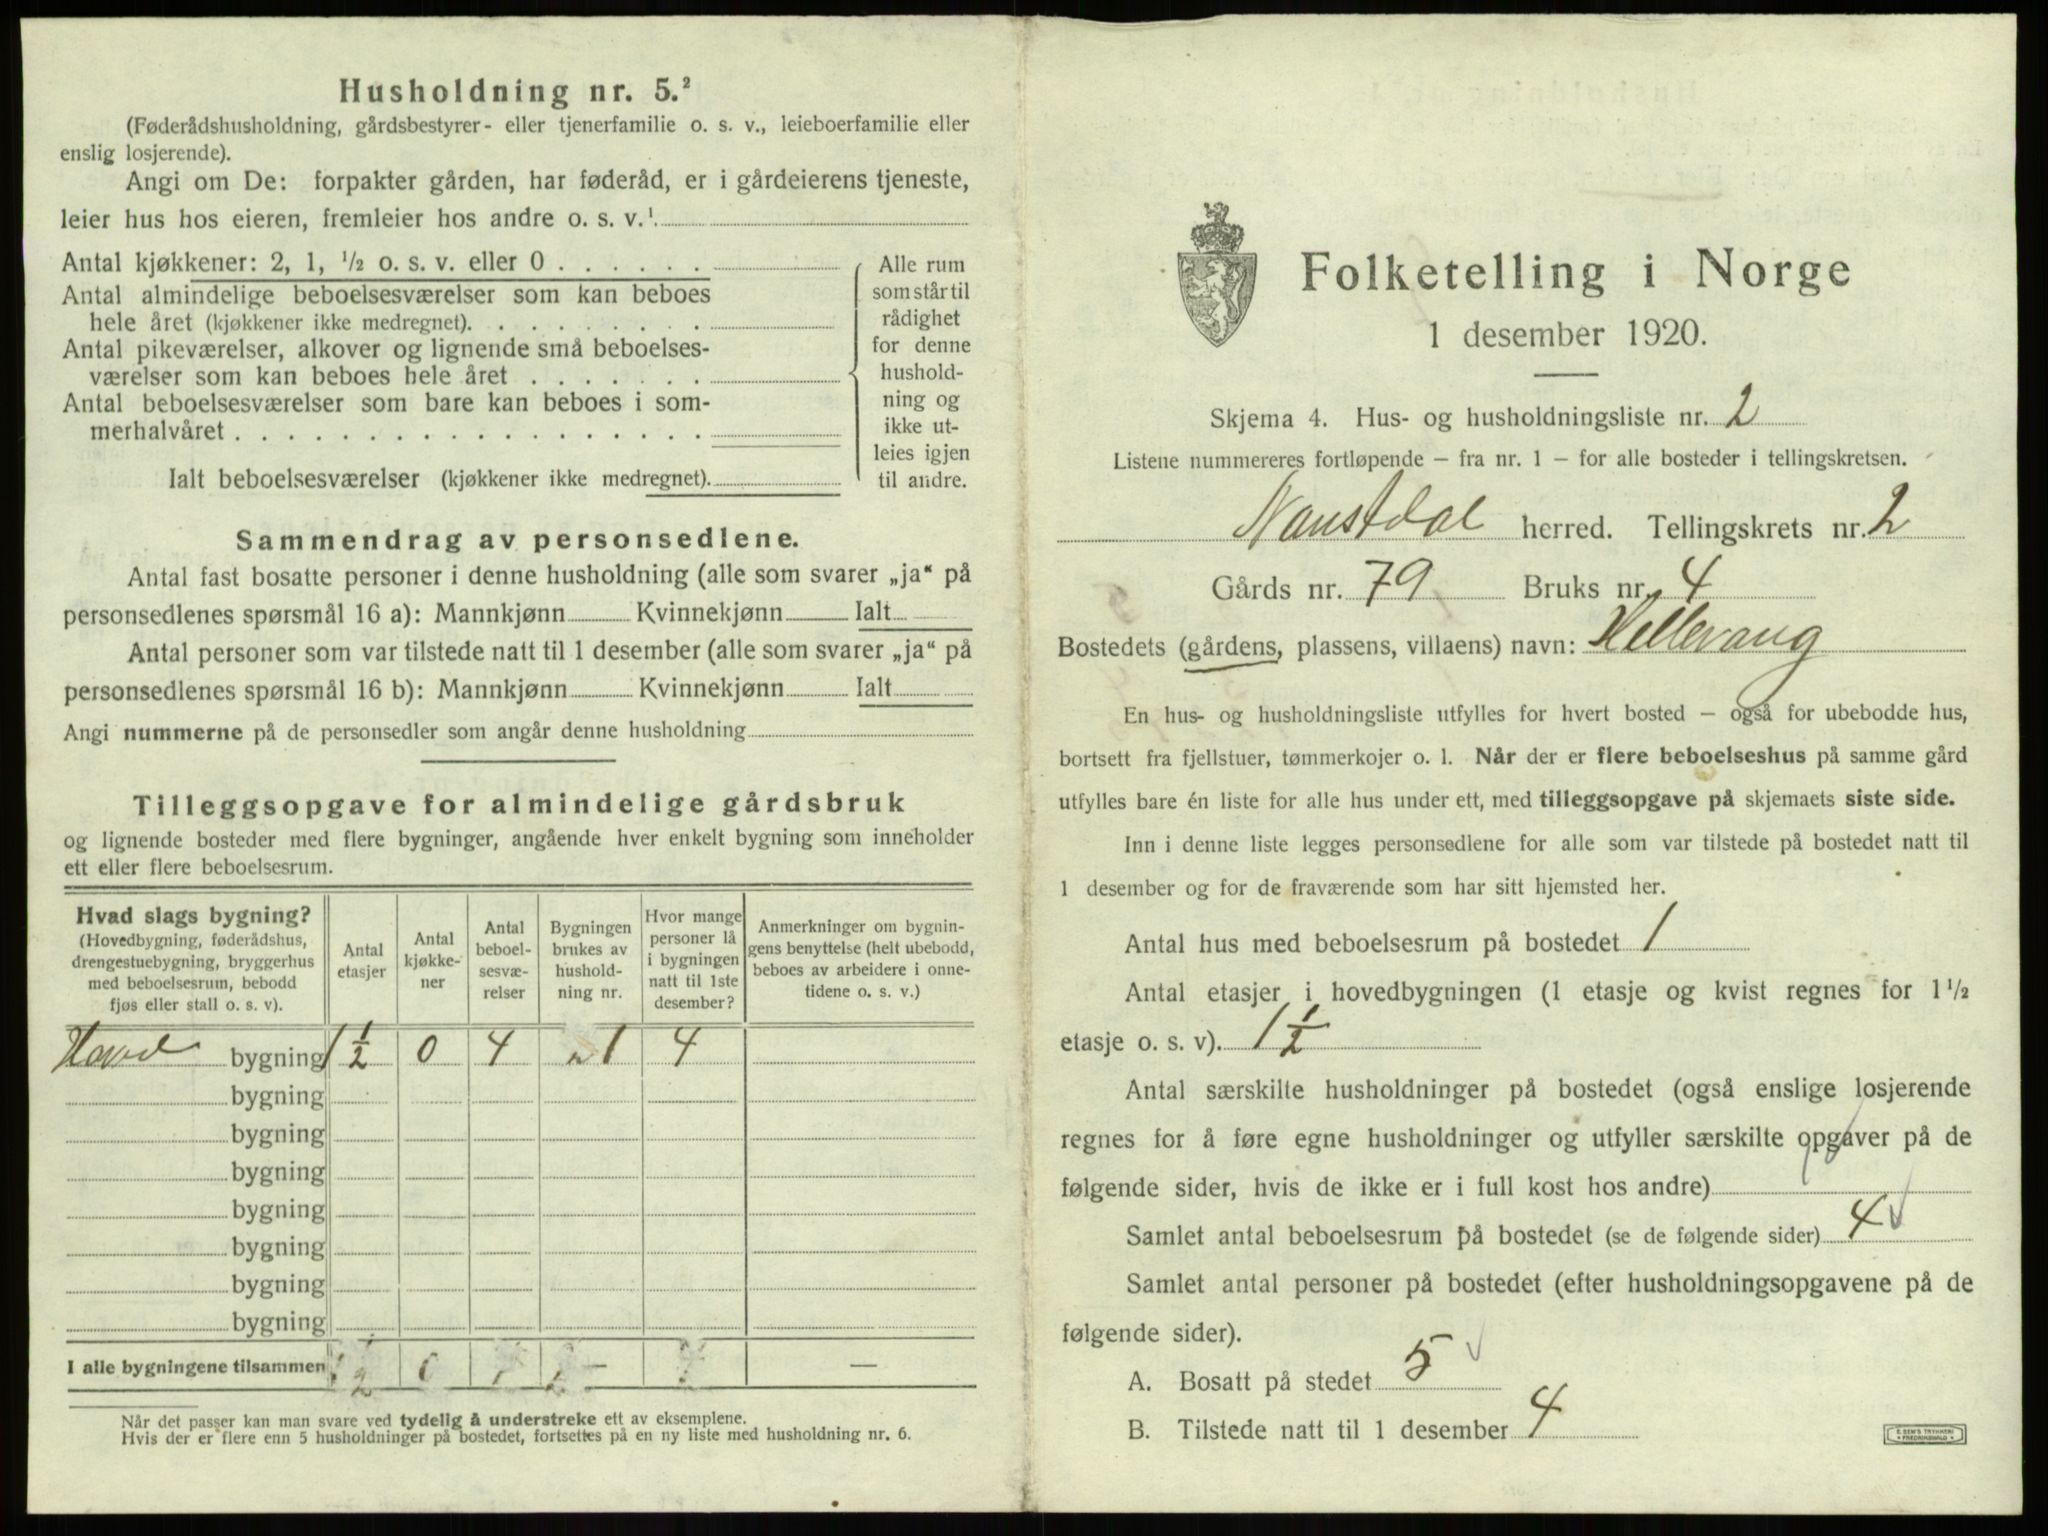 Husholdning nr. 5.²
(Føderådshusholdning, gårdsbestyrer- eller tjenerfamilie o. s. v., leieboerfamilie eller
enslig losjerende).
Angi om De: forpakter gården, har føderåd, er i gårdeierens tjeneste,
leier hus hos eieren, fremleier hos andre o. s. v.¹
Antal kjøkkener: 2, 1, ½ o. s. v. eller 0 . . . . . .
Antal almindelige beboelsesværelser som kan beboes
hele året (kjøkkener ikke medregnet). . . . . . . . .
Antal pikeværelser, alkover og lignende små beboelses-
værelser som kan beboes hele året . . . . . . .
Antal beboelsesværelser som bare kan beboes i som-
merhalvåret . . . . . . . . . . . . . . . . . .
Ialt beboelsesværelser (kjøkkener ikke medregnet).
Alle rum
som står til
rådighet
for denne
hushold-
ning og
ikke ut-
leies igjen
til andre.
Sammendrag av personsedlene.
Antal fast bosatte personer i denne husholdning (alle som svarer „ja“ på
personsedlenes spørsmål 16 a): Mannkjønn Kvinnekjønn Ialt
Antal personer som var tilstede natt til 1 desember (alle som svarer „ja“ på
personsedlenes spørsmål 16 b): Mannkjønn Kvinnekjønn Ialt
Angi nummerne på de personsedler som angår denne husholdning
Tilleggsopgave for almindelige gårdsbruk
og lignende bosteder med flere bygninger, angående hver enkelt bygning som inneholder
ett eller flere beboelsesrum.
Hvad slags bygning?
(Hovedbygning, føderådshus,
drengestuebygning, bryggerhus
med beboelsesrum, bebodd
fjøs eller stall o. s. v).
Antal
etasjer
Antal
kjøkke-
ner
Antal
beboel-
sesvæ-
relser
Bygningen
brukes av
hushold-
ning nr.
Hvor mange
personer lå
i bygningen
natt til 1ste
desember?
Anmerkninger om bygnin-
gens benyttelse (helt ubebodd,
beboes av arbeidere i onne-
tidene o. s. v.)
Hovd bygning 1½ 0 4 1 4
bygning
bygning
bygning
bygning
bygning
bygning
bygning
I alle bygningene tilsammen — —
Når det passer kan man svare ved tydelig å understreke ett av eksemplene.
Hvis der er flere enn 5 husholdninger på bostedet, fortsettes på en ny liste med husholdning nr. 6.
Folketelling i Norge
1 desember 1920.
Skjema 4. Hus- og husholdningsliste nr. 2
Listene nummereres fortløpende – fra nr. 1 – for alle bosteder i tellingskretsen.
Naustdal herred. Tellingskrets nr. 2
Gårds nr. 79 Bruks nr. 4
Bostedets (gårdens, plassens, villaens) navn: Hellevang
En hus- og husholdningsliste utfylles for hvert bosted – også for ubebodde hus,
bortsett fra fjellstuer, tømmerkojer o. l. Når der er flere beboelseshus på samme gård
utfylles bare én liste for alle hus under ett, med tilleggsopgave på skjemaets siste side.
Inn i denne liste legges personsedlene for alle som var tilstede på bostedet natt til
1 desember og for de fraværende som har sitt hjemsted her.
Antal hus med beboelsesrum på bostedet 1
Antal etasjer i hovedbygningen (1 etasje og kvist regnes for 1½
etasje o. s. v). 1½
Antal særskilte husholdninger på bostedet (også enslige losjerende
regnes for å føre egne husholdninger og utfyller særskilte opgaver på de
følgende sider, hvis de ikke er i full kost hos andre)
Samlet antal beboelsesrum på bostedet (se de følgende sider) 4
Samlet antal personer på bostedet (efter husholdningsopgavene på de
følgende sider).
A. Bosatt på stedet 5
B. Tilstede natt til 1 desember 4
E. SEM'S TRYKKERI
FREDRIKSHALD